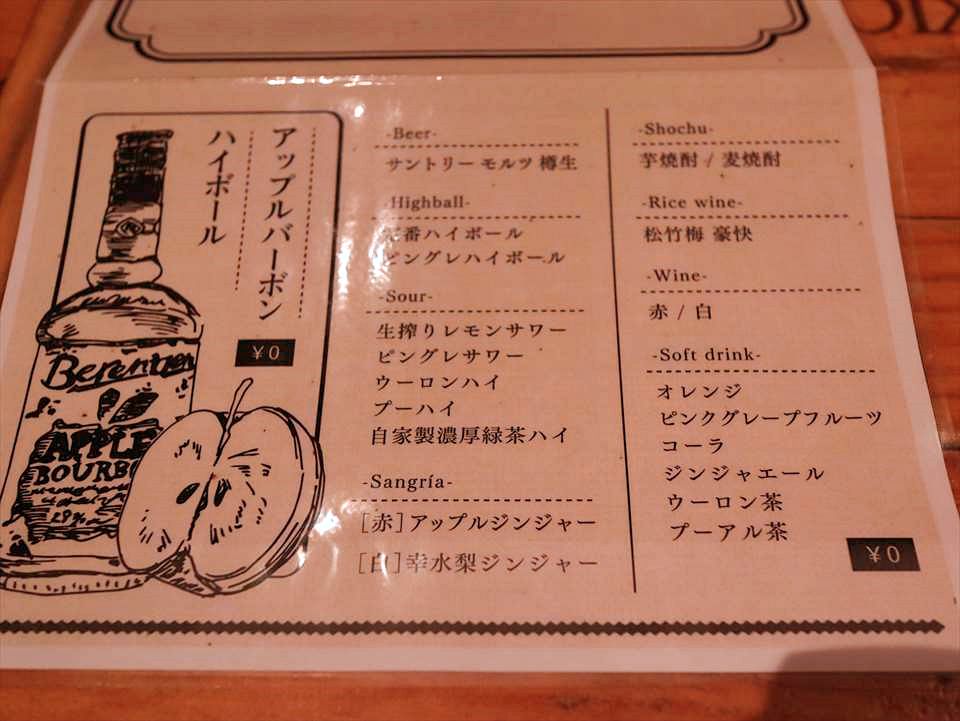 アップルバーボン
ハイボール
¥0
Berentzen
APPLE
BOURBO
-Beer-
サントリー モルツ 樽生
-Highball-
番ハイボール
ピングレハイボール
-Sour-
生搾りレモンサワー
ピングレサワー
ウーロンハイ
プーハイ
自家製濃厚緑茶ハイ
-Sangría-
[赤]アップルジンジャー
[白]幸水梨ジンジャー
-Shochu-
芋焼酎 / 麦焼酎
-Rice wine-
松竹梅 豪快
-Wine-
赤 / 白
-Soft drink-
オレンジ
ピンクグレープフルーツ
コーラ
ジンジャエール
ウーロン茶
プーアル茶
¥0